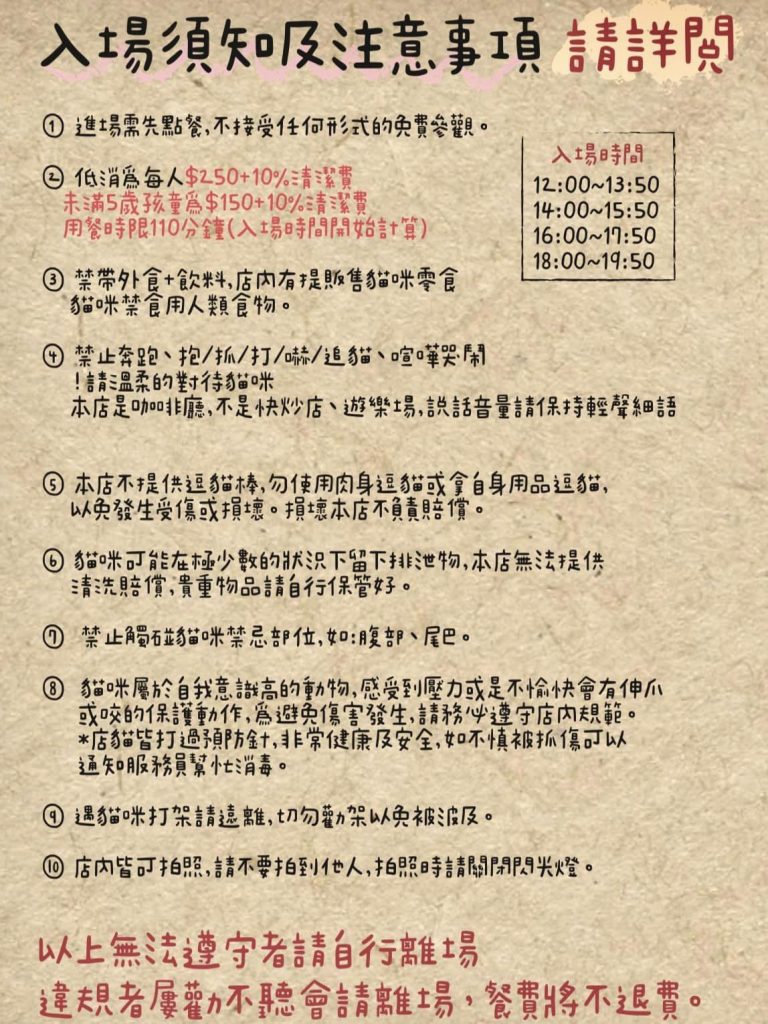 入場須知及注意事項 請詳閱
① 進場需先點餐,不接受任何形式的免費參觀。
② 低消為每人$250+10%清潔費
未滿5歲孩童為$150+10%清潔費
用餐時限110分鐘(入場時間開始計算)
入場時間
12:00~13:50
14:00~15:50
16:00~17:50
18:00~19:50
③ 禁帶外食+飲料,店內有提販售貓咪零食
貓咪禁食用人類食物。
④ 禁止奔跑、抱/抓/打/嚇/追貓、喧嘩哭鬧
!請溫柔的對待貓咪
本店是咖啡廳,不是快炒店、遊樂場,說話音量請保持輕聲細語
⑤ 本店不提供逗貓棒,勿使用肉身逗貓或拿自身用品逗貓,
以免發生受傷或損壞。損壞本店不負責賠償。
⑥ 貓咪可能在極少數的狀況下留下排泄物,本店無法提供
清洗賠償,貴重物品請自行保管好。
⑦ 禁止觸碰貓咪禁忌部位,如:腹部、尾巴。
⑧ 貓咪屬於自我意識高的動物,感受到壓力或是不愉快會有伸爪
或咬的保護動作,為避免傷害發生,請務必遵守店內規範。
*店貓皆打過預防針,非常健康及安全,如不慎被抓傷可以
通知服務員幫忙消毒。
⑨ 遇貓咪打架請遠離,切勿勸架以免被波及。
⑩ 店內皆可拍照,請不要拍到他人,拍照時請關閉閃光燈。
以上無法遵守者請自行離場
違規者屢勸不聽會請離場，餐費將不退費。